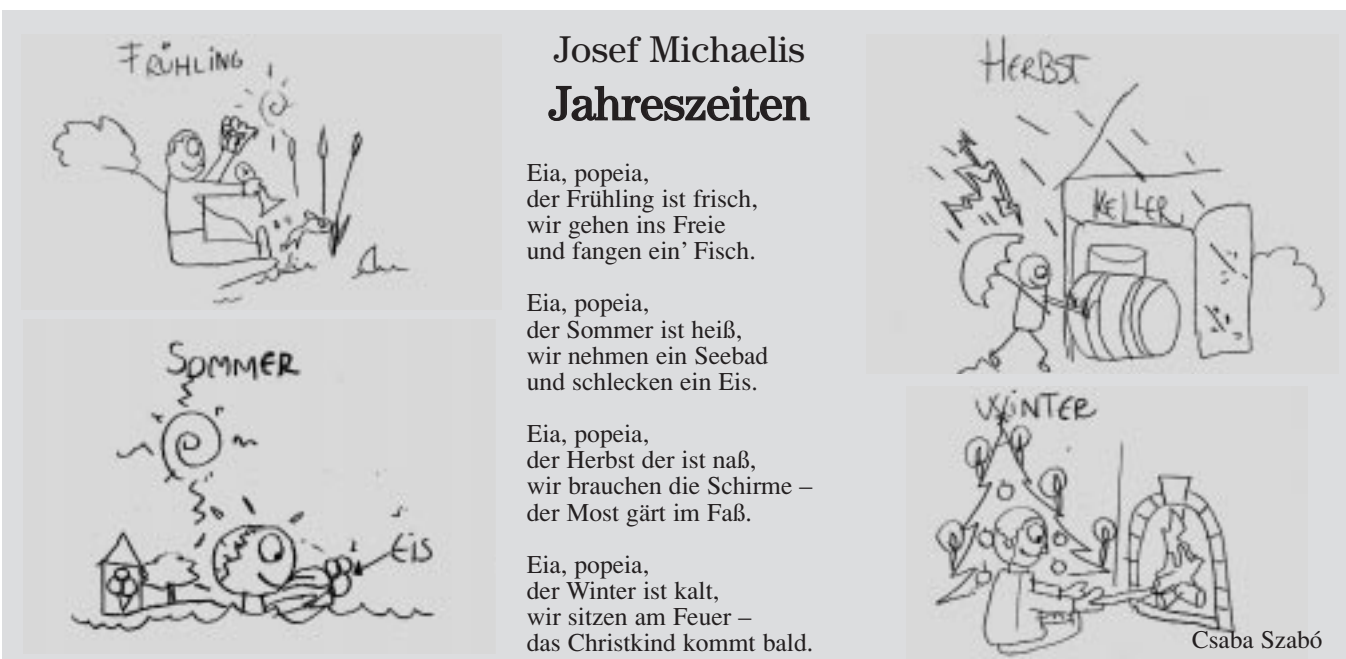 FRÜHLING
SOMMER
EIS
Josef Michaelis
Jahreszeiten
Eia, popeia,
der Frühling ist frisch,
wir gehen ins Freie
und fangen ein’ Fisch.
Eia, popeia,
der Sommer ist heiß,
wir nehmen ein Seebad
und schlecken ein Eis.
Eia, popeia,
der Herbst der ist naß,
wir brauchen die Schirme –
der Most gärt im Faß.
Eia, popeia,
der Winter ist kalt,
wir sitzen am Feuer –
das Christkind kommt bald.
HERBST
KELLER
WINTER
Csaba Szabó